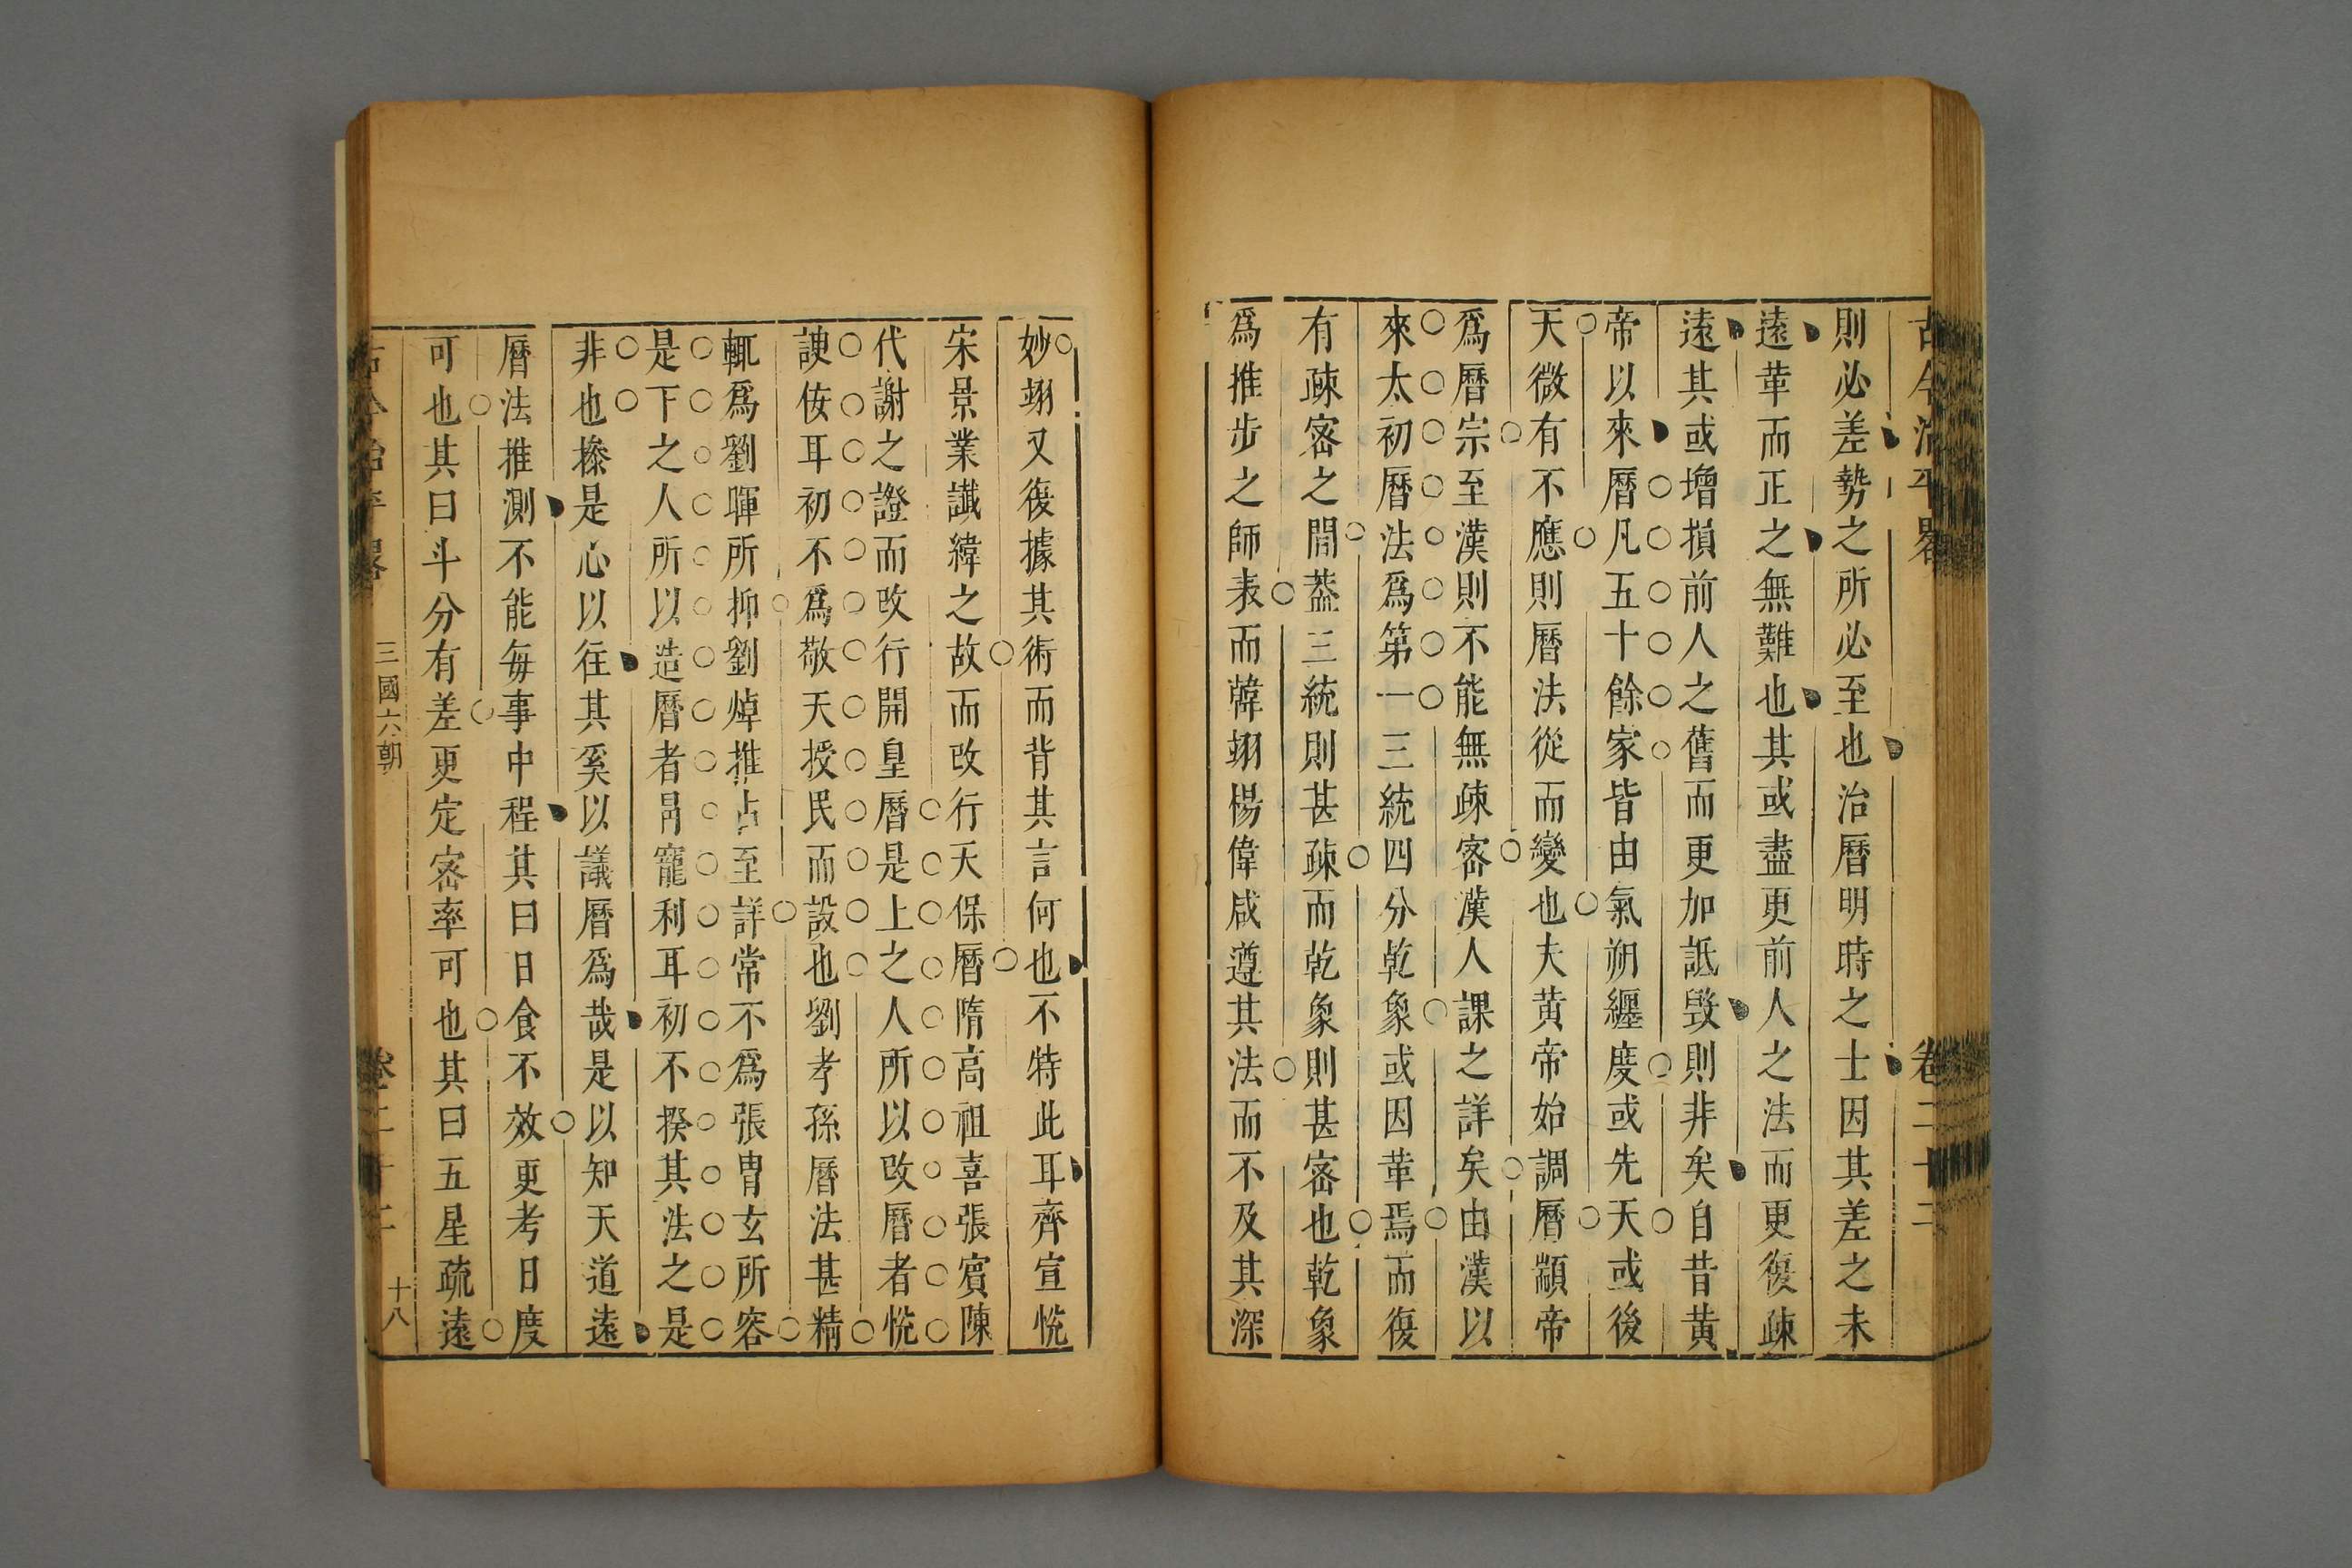 古今治平畧 卷二十二
則必差勢之所必至也治曆明時之士因其差之未
遠革而正之無難也其或盡更前人之法而更復疎
遠其或增損前人之舊而更加詆毀則非矣自昔黃
帝以來曆凡五十餘家皆由氣朔纏度或先天或後
天微有不應則曆法從而變也夫黃帝始調曆顓帝
爲曆宗至漢則不能無疎宻漢人課之詳矣由漢以
來太初曆法爲第一三統四分乾象或因革焉而復
有疎宻之間葢三統則甚疎而乾象則甚宻也乾象
爲推步之師表而韓翊楊偉咸遵其法而不及其深
妙翊又復據其術而背其言何也不特此耳齊宣恱
宋景業讖緯之故而攺行天保曆隋高祖喜張賔陳
代謝之證而攺行開皇曆是上之人所以攺曆者恱
諛佞耳初不爲敬天授民而設也劉孝孫曆法甚精
輒爲劉暉所抑劉焯推占至詳常不爲張胄玄所容
是下之人所以造曆者冐寵利耳初不揆其法之是
非也搽是心以往其奚以議曆爲哉是以知天道遠
曆法推測不能每事中程其曰日食不效更考日度
可也其曰斗分有差更定宻率可也其曰五星疏遠
古今治平畧 三國六朝 卷二十二 十八